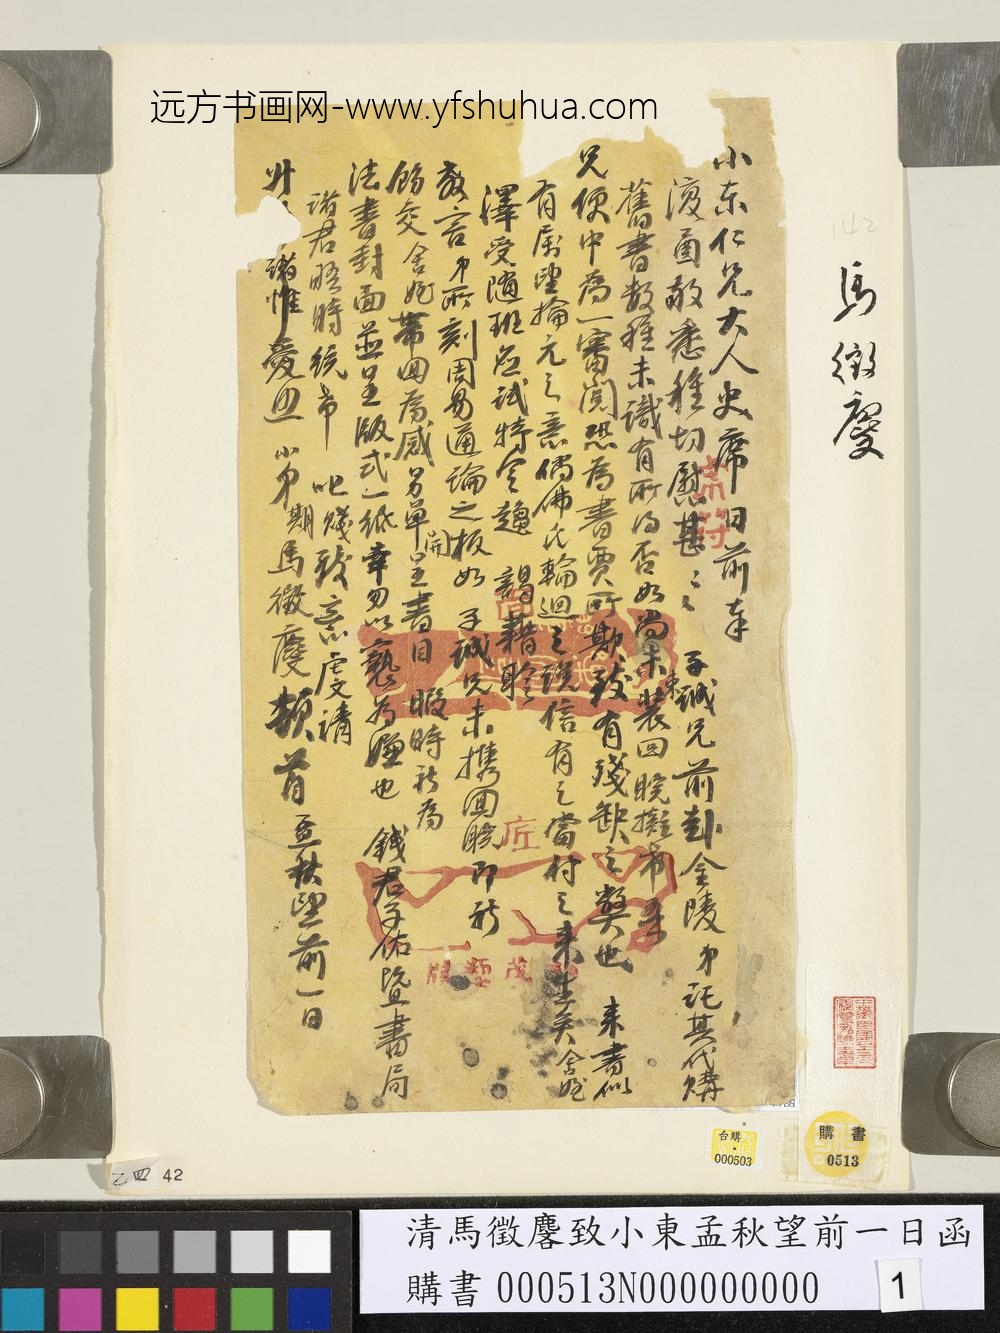 远方书画网-www.yfshuhua.com
小東仁兄大人史席日前奉
復函敬悉種切慰甚〻 子誠兄前赴金陵弟託其代購
舊書數種未識有所得否如尚未裝回皖擬求
兄便中為一審閱恐為書賈所欺致有殘缺之弊也 來書似
有屬望掄元之意倘佛氏輪迴之說信有之當付之來生矣舍姪
澤受隨班應試特令趨 謁藉聆
教言弟所刻周易通論之板如 子誠兄未攜回皖即祈
飭交舍姪帶回為感另單開呈書目 暇時祈為
法書封面並呈版式一紙幸勿以褻為嫌也 錢君子佑暨書局
諸君晤時統希 叱賤致意虔請
諸惟愛照 小弟期馬徵麐頓首孟秋望前一日
馬徵麐
142
乙四 42
台購
000503
購書
0513
清馬徵麐致小東孟秋望前一日函
購書 000513N000000000 1